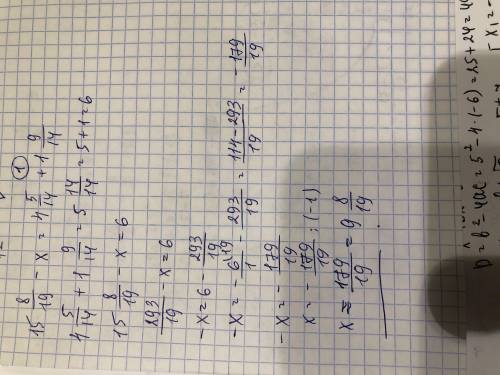 ①
15 8/19 - x = 4 5/14 + 1 9/14
4 5/14 + 1 9/14 = 5 14/14 = 5 + 1 = 6
15 8/19 - x = 6
293/19 - x = 6
-x = 6 - 293/19
-x = - 6\19/1 - 293/19 = 114-293/19 = - 179/19
-x = - 179/19
x = - 179/19 : (-1)
x = 179/19 = 9 8/19
D = b² - 4ac = 5² - 4·(-6) = 25 + 24 = 4